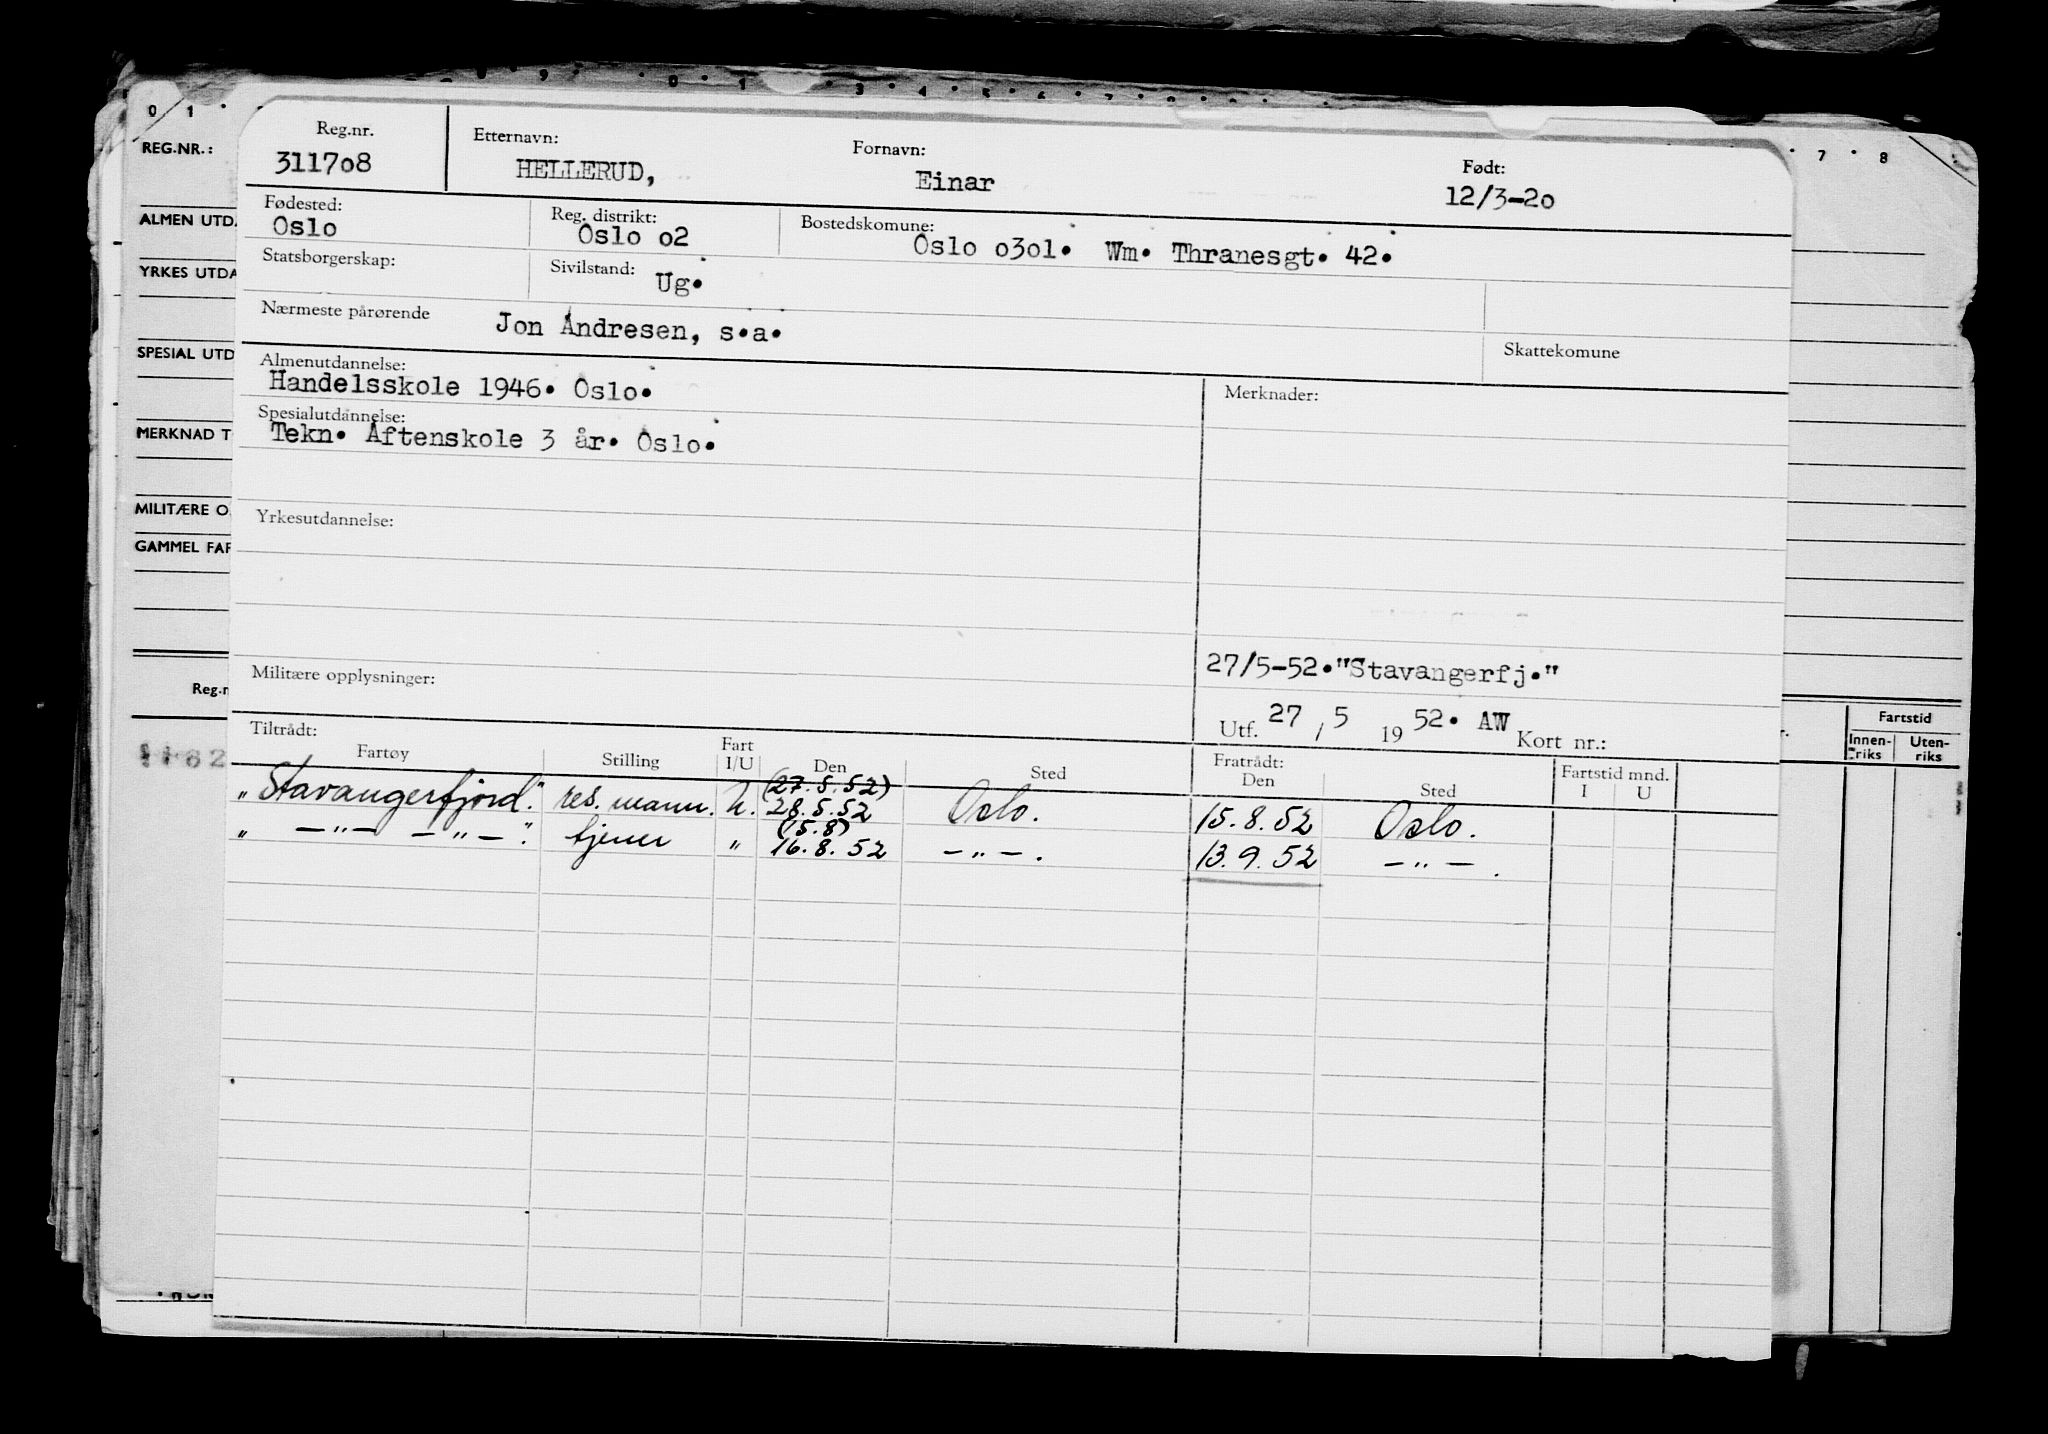 0 1 9 0 1 3 4 5 6 7 8
REG.NR.:
ALMEN UTD
YRKES UTDA
SPESIAL UTD
MERKNAD T
MILITÆRE O
GAMMEL FAR
Reg.n
1182
Fartstid
Innen-riks Uten-riks
Reg.nr. Etternavn: Fornavn: Født:
311708 HELLERUD, Einar 12/3-20
Fødested: Reg. distrikt: Bostedskomune:
Oslo Oslo o2 Oslo o3o1. Wm. Thranesgt. 42.
Statsborgerskap: Sivilstand: Ug.
Nærmeste pårørende Jon Andresen, s.a.
Skattekomune
Almenutdannelse: Merknader:
Handelsskole 1946. Oslo.
Spesialutdannelse:
Tekn. Aftenskole 3 år. Oslo.
Yrkesutdannelse:
27/5-52."Stavangerfj."
Militære opplysninger:
Utf. 27 / 5 19 52. AW Kort nr.:
Tiltrådt: Fratrådt:
Fartøy Stilling Fart I/U Den Sted Den Sted Fartstid mnd. I U
(27.5.52)
"Stavangerfjord." res. mann. U. 28.5.52 Oslo. 15.8.52 Oslo.
(15.8)
" —"— —"—". tjener " 16.8.52 —"—. 13.9.52 —"—.